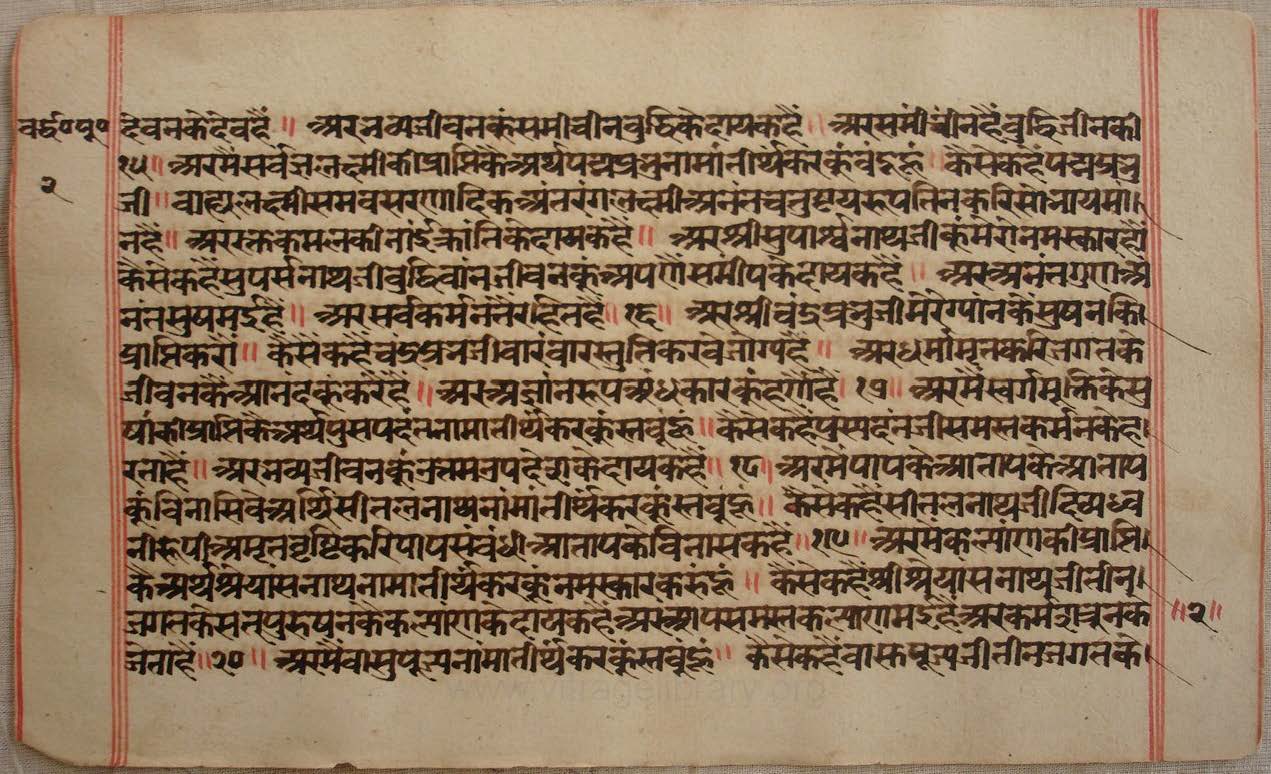 वर्द्ध॰पु॰
२
देवनके देव हैं ॥ अर भव्यजीवनकूं समीचीन बुद्धिके दायक हैं ॥ अर समीचीन हैं बुद्धि जीनकी
१५ ॥ अर मैं सर्वज्ञ लक्ष्मीकी प्राप्तिकै अर्थ पद्मप्रभुनामा तीर्थंकरकूं वंदू हूं ॥ कैसेक हैं पद्मप्रभु
जी ॥ वाह्यलक्ष्मी समवसरणादिक अंतरंगलक्ष्मी अनंतचतुष्टयरूप तिनकरि सोभायमा।
न हैं ॥ अर रक्त कमलकी नांई कांतिके दायक हैं ॥ अर श्रीसुपार्श्वनाथजीकूं मेरा नमस्कार हो।
कैसेक हैं सुपर्सनाथजी बुद्धिवान जीवनकूं अपणे समीपके दायक हैं ॥ अर अनंतगुण अ
नंतसुषमई हैं ॥ अर सर्वकर्मनतै रहित हैं ॥ १६ ॥ अर श्रीचंद्रप्रभुजी मेरे ग्यानके सुषनकि।
प्राप्ति करो ॥ कैसेक हैं चंद्रप्रभजी वारंवार स्तुति करवे जोग्य हैं ॥ अर धर्मामृतकरि जगतके
जीवनकै आनंदकूं करै हैं ॥ अर अज्ञानरूप अंधकारकूं हणै हैं ॥ १७ ॥ अर मैं स्वर्गमुक्तिके सु
षांकी प्राप्तिकै अर्थ पुसपदंतनामा तीर्थंकरकूं स्तवुं हूं ॥ कैसेक हैं पुस्पदंतजी समस्त कर्मनके ह।
रता हैं ॥ अर भव्यजीवनकूं उत्तम उपदेशके दायक हैं ॥ १८ ॥ अर मैं पापके आताप के आताप
कूं विनासिवे अर्थि सीतलनाथनामा तीर्थंकरकूं स्तवुं हूं ॥ कैसेक हैं सीतलनाथजी दिव्यध्व
नीरूपी अमृतवृष्टिकरि पापसंबंधी आतापके विनासक हैं ॥ १९ ॥ अर मैं कल्याणकी प्राप्ति।
कै अर्थ श्रेयांसनाथनामा तीर्थंकरकूं नमस्कार करूं हूं ॥ कैसेक हैं श्रीश्रेयांसनाथजी तीन।
जगतके सतपुरुषनकै कल्याणके दायक हैं अर आप समस्त कल्याणमई हैं अर कर्मशत्रुनके
जेता हैं ॥ २० ॥ अर मैं वासुपूज्यनामा तीर्थंकरकूं स्तवुं हूं ॥ कैसेक हैं वासपूज्यजी तीनजगतके।
॥२॥